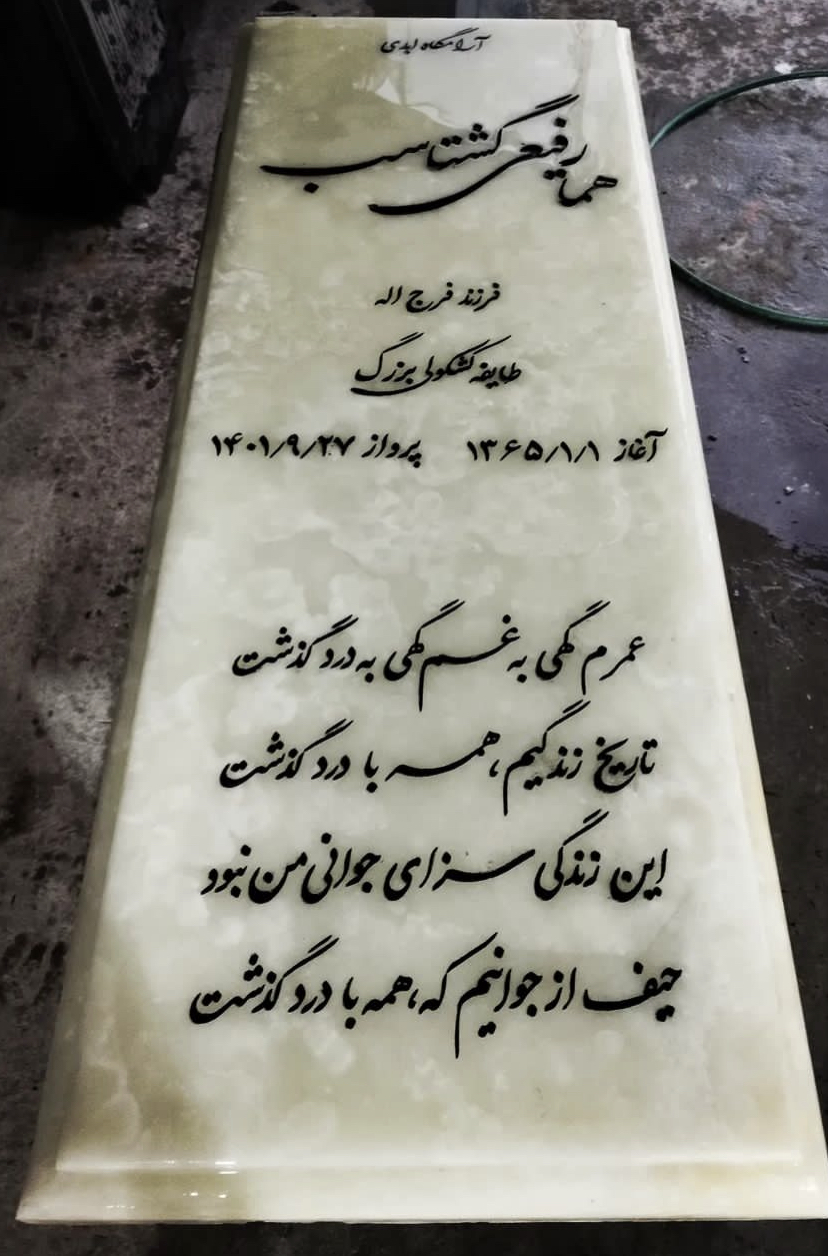 آرامگاه ابدی
هما رفیعی گشتاسب
فرزند فرج اله
طایفه کشکولی بزرگ
آغاز ۱۳۶۵/۱/۱ پرواز ۱۴۰۱/۹/۲۷
عمرم گهی به غم گهی به درد گذشت
تاریخ زندگیم، همه با درد گذشت
این زندگی سزای جوانی من نبود
حیف از جوانیم که، همه با درد گذشت